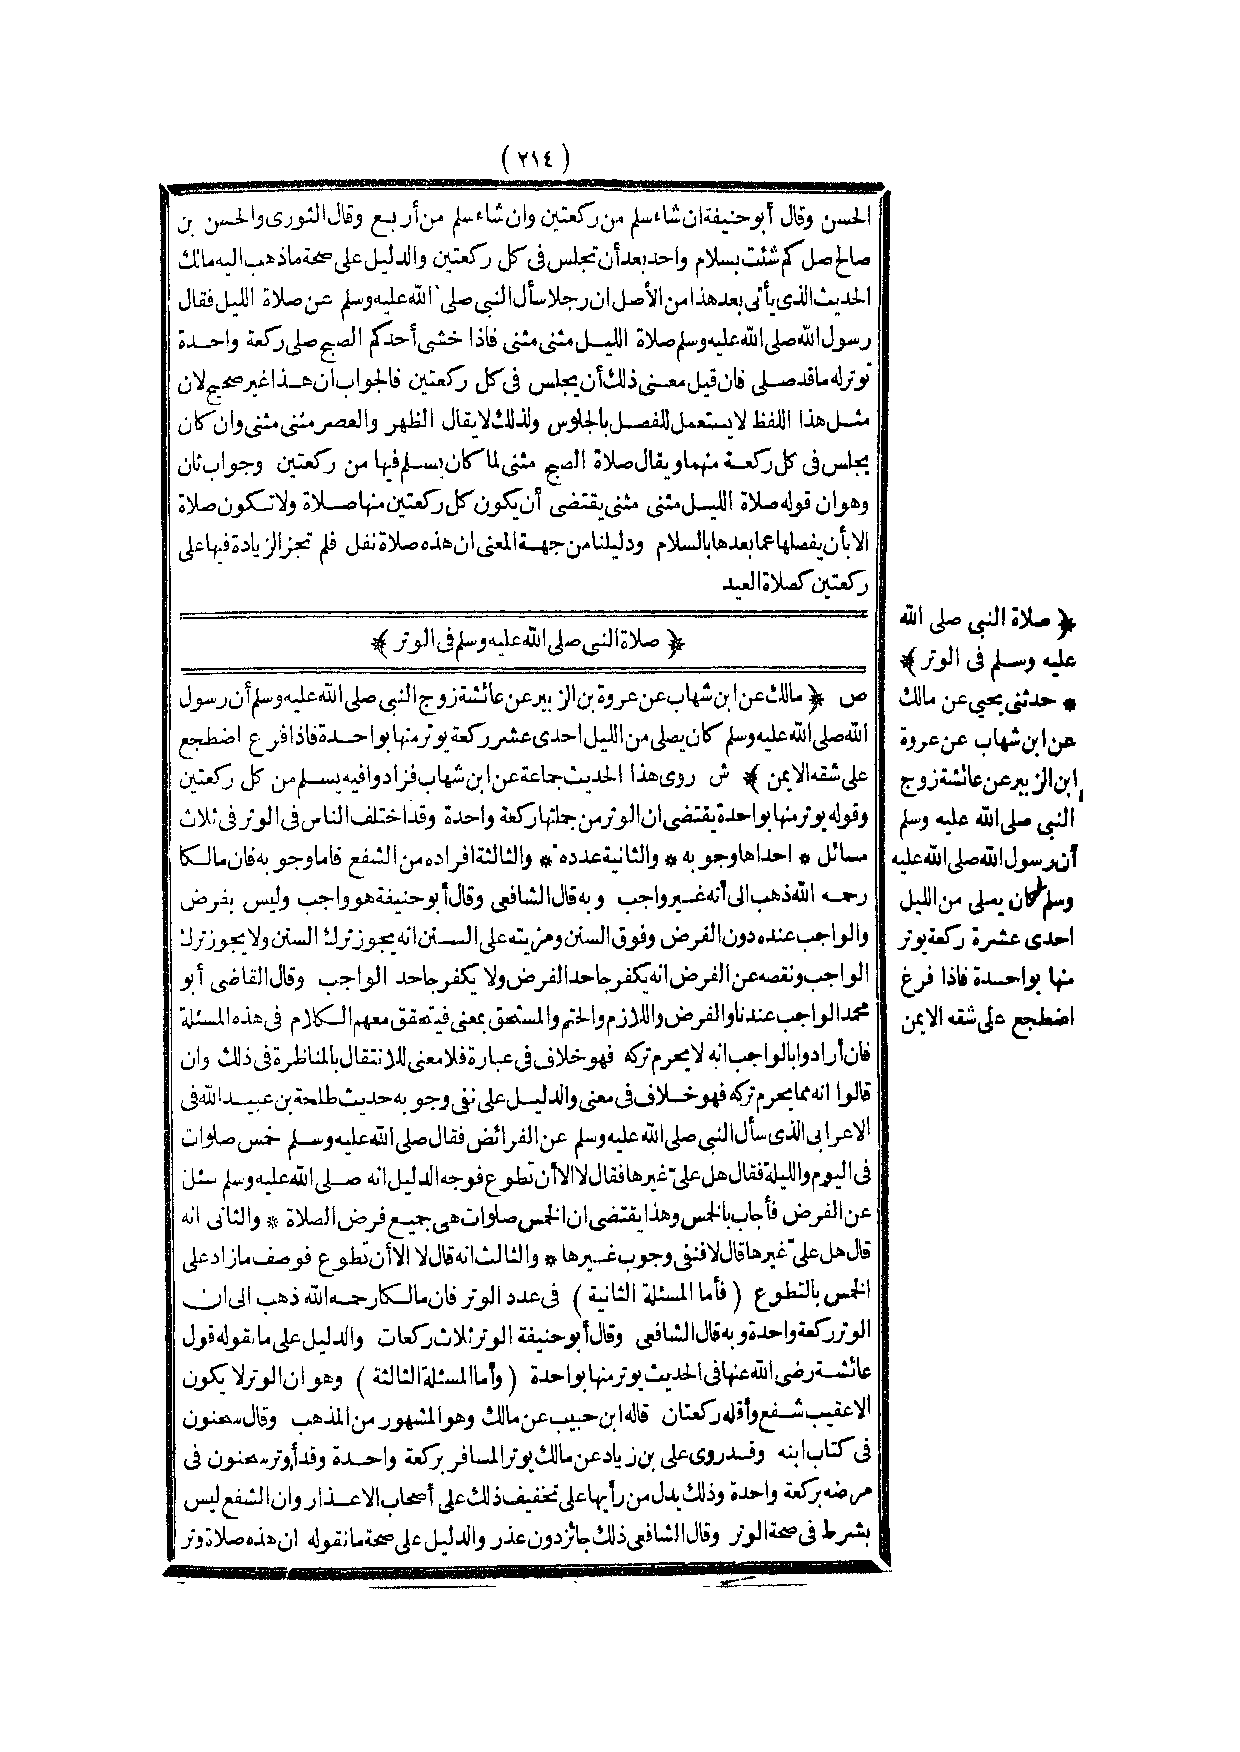 (٢١٤)
الحسن وقال أبو حنيفة ان شاء سلم من ركعتين وان شاء سلم من أربع وقال الثورى والحسن بن
صالح صل كم شئت بسلام واحد بعد أن تجلس فى كل ركعتين والدليل على صحة ما ذهب اليه مالك
الحديث الذى يأتى بعد هذا من الأصل ان رجلا سأل النبى صلى الله عليه وسلم عن صلاة الليل فقال
رسول الله صلى الله عليه وسلم صلاة الليل مثنى مثنى فاذا خشى أحدكم الصبح صلى ركعة واحدة
توتر له ما قد صلى فان قيل معنى ذلك أن يجلس فى كل ركعتين فالجواب ان هذا غير صحيح لان
مثل هذا اللفظ لا يستعمل للفصل بالجلوس ولذلك لا يقال الظهر والعصر مثنى مثنى وان كان
يجلس فى كل ركعة منهما ويقال صلاة الصبح مثنى لما كان يسلم فيها من ركعتين وجواب ثان
وهو ان قوله صلاة الليل مثنى مثنى يقتضى أن يكون كل ركعتين منها صلاة ولا تكون صلاة
الا بأن يفصلها عما بعدها بالسلام ودليلنا من جهة المعنى ان هذه صلاة نفل فلم تجز الزيادة فيها على
ركعتين كصلاة العيد
﴿ صلاة النبى صلى الله عليه وسلم فى الوتر ﴾
ص ﴿ مالك عن ابن شهاب عن عروة بن الزبير عن عائشة زوج النبى صلى الله عليه وسلم أن رسول
الله صلى الله عليه وسلم كان يصلى من الليل احدى عشر ركعة يوتر منها بواحدة فاذا فرغ اضطجع
على شقه الايمن ﴾ ش روى هذا الحديث جماعة عن ابن شهاب فزادوا فيه يسلم من كل ركعتين
وقوله يوتر منها بواحدة يقتضى ان الوتر من جملتها ركعة واحدة وقد اختلف الناس فى الوتر فى ثلاث
مسائل * احداها وجوبه * والثانية عدده * والثالثة افراده من الشفع فاما وجوبه فان مالكا
رحمه الله ذهب الى أنه غير واجب وبه قال الشافعى وقال أبو حنيفة هو واجب وليس بفرض
والواجب عنده دون الفرض وفوق السنن ومزيته على السنن انه يجوز ترك السنن ولا يجوز ترك
الواجب ونقصه عن الفرض انه يكفر جاحد الفرض ولا يكفر جاحد الواجب وقال القاضى أبو
محمد الواجب عندنا والفرض واللازم والحتم والمستحق بمعنى فيتحقق معهم الكلام فى هذه المسئلة
فان أرادوا بالواجب انه لا يحرم تركه فهو خلاف فى عبارة فلا معنى للانتقال بالمناظرة فى ذلك وان
قالوا انه مما يحرم تركه فهو خلاف فى معنى والدليل على نفى وجوبه حديث طلحة بن عبيد الله فى
الاعرابى الذى سأل النبى صلى الله عليه وسلم عن الفرائض فقال صلى الله عليه وسلم خمس صلوات
فى اليوم والليلة فقال هل علىّ غيرها فقال لا الا أن تطوع فوجه الدليل انه صلى الله عليه وسلم سئل
عن الفرض فأجاب بالخمس وهذا يقتضى ان الخمس صلوات هى جميع فرض الصلاة * والثانى انه
قال هل علىّ غيرها قال لا فنفى وجوب غيرها * والثالث انه قال لا الا أن تطوع فوصف ما زاد على
الخمس بالتطوع (فأما المسئلة الثانية) فى عدد الوتر فان مالكا رحمه الله ذهب الى ان
الوتر ركعة واحدة وبه قال الشافعى وقال أبو حنيفة الوتر ثلاث ركعات والدليل على ما نقوله قول
عائشة رضى الله عنها فى الحديث يوتر منها بواحدة (وأما المسئلة الثالثة) وهو ان الوتر لا يكون
الا عقيب شفع وأقله ركعتان قاله ابن حبيب عن مالك وهو المشهور من المذهب وقال سحنون
فى كتاب ابنه وقد روى على بن زياد عن مالك يوتر المسافر بركعة واحدة وقد أوتر سحنون فى
مرضه بركعة واحدة وذلك يدل من رأيها على تخفيف ذلك على أصحاب الاعذار وان الشفع ليس
بشرط فى صحة الوتر وقال الشافعى ذلك جائز دون عذر والدليل على صحة ما نقوله ان هذه صلاة وتر
﴿ صلاة النبى صلى الله
عليه وسلم فى الوتر ﴾
* حدثنى يحيى عن مالك
عن ابن شهاب عن عروة
ابن الزبير عن عائشة زوج
النبى صلى الله عليه وسلم
أن رسول الله صلى الله عليه
وسلم كان يصلى من الليل
احدى عشرة ركعة يوتر
منها بواحدة فاذا فرغ
اضطجع على شقه الايمن